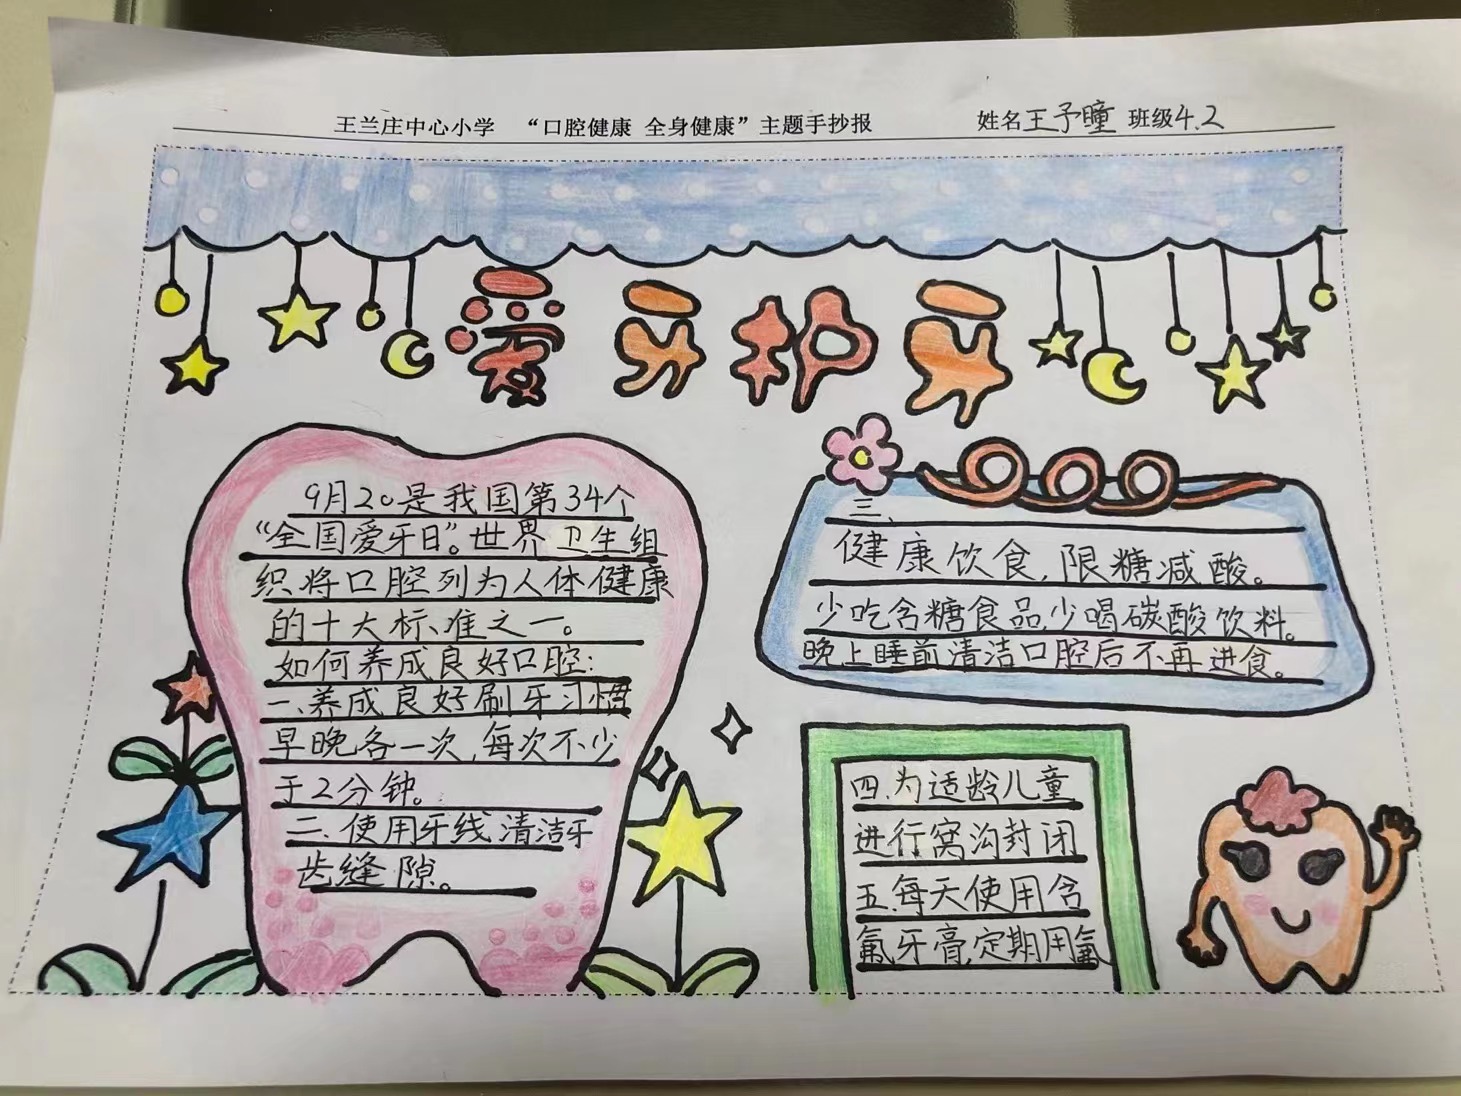 王兰庄中心小学 “口腔健康 全身健康”主题手抄报 姓名王予瞳 班级4.2
爱牙护牙
9月20是我国第34个
“全国爱牙日”。世界卫生组
织将口腔列为人体健康
的十大标准之一。
如何养成良好口腔:
一、养成良好刷牙习惯
早晚各一次,每次不少
于2分钟。
二、使用牙线清洁牙
齿缝隙。
三、
健康饮食,限糖减酸。
少吃含糖食品,少喝碳酸饮料。
晚上睡前清洁口腔后不再进食。
四.为适龄儿童
进行窝沟封闭
五.每天使用含
氟牙膏,定期用氟